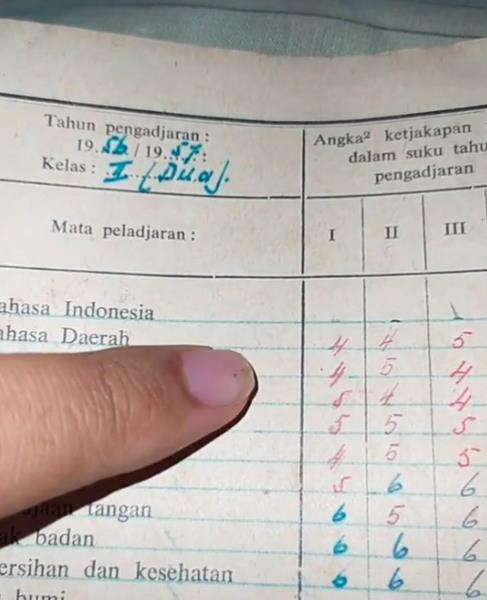 Tahun pengadjaran :
19.56 / 19.57.:
Kelas : I (Dua).
Angka² ketjakapan
dalam suku tahu
pengadjaran
Mata peladjaran : I II III
ahasa Indonesia - - -
ahasa Daerah 4 4 5
4 5 4
5 4 4
5 5 5
4 5 5
5 6 6
tangan 6 5 6
ak badan 6 6 6
ersihan dan kesehatan 6 6 6
bumi